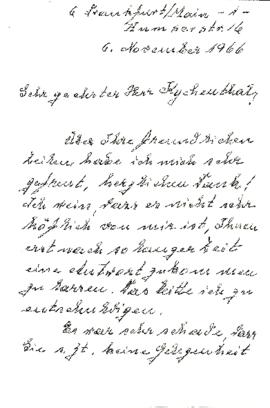 6 Frankfurt/Main - 1 -
Humserstr. 16
6. November 1966
Sehr geehrter Herr Kychenthal,
Über Ihre freundlichen
Zeilen habe ich mich sehr
gefreut, herzlichen Dank!
Ich weiss, dass es nicht sehr
höflich von mir ist, Ihnen
erst nach so langer Zeit
eine Antwort zukommen
zu lassen. Das bitte ich zu
entschuldigen.
Es war sehr schade, dass
Sie s. Zt. keine Gelegenheit